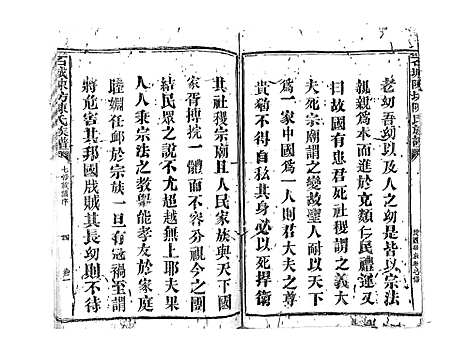 石城陳坊陳氏族譜
老幼吾幼以及人之幼是皆以宗法
親親爲本而進於克類仁民禮運又
故曰國有患君死社稷謂之義大
夫死宗廟謂之變故聖人耐以天下
爲一家中國爲一人則君大夫之尊
貴然不敢自私其身必以死捍衛
其社稷宗廟且人民家族與天下國
家胥摶捖一體而不容分視今之團
結民眾之說不尤超越無上耶夫果
人人乘宗法之教舉能孝友於家庭
睦婣任卹於宗族一旦有冦禍至謂
將危害其邦國戕賊其長幼則不待
石城陳坊陳氏族譜
七修族譜序
四
卷一